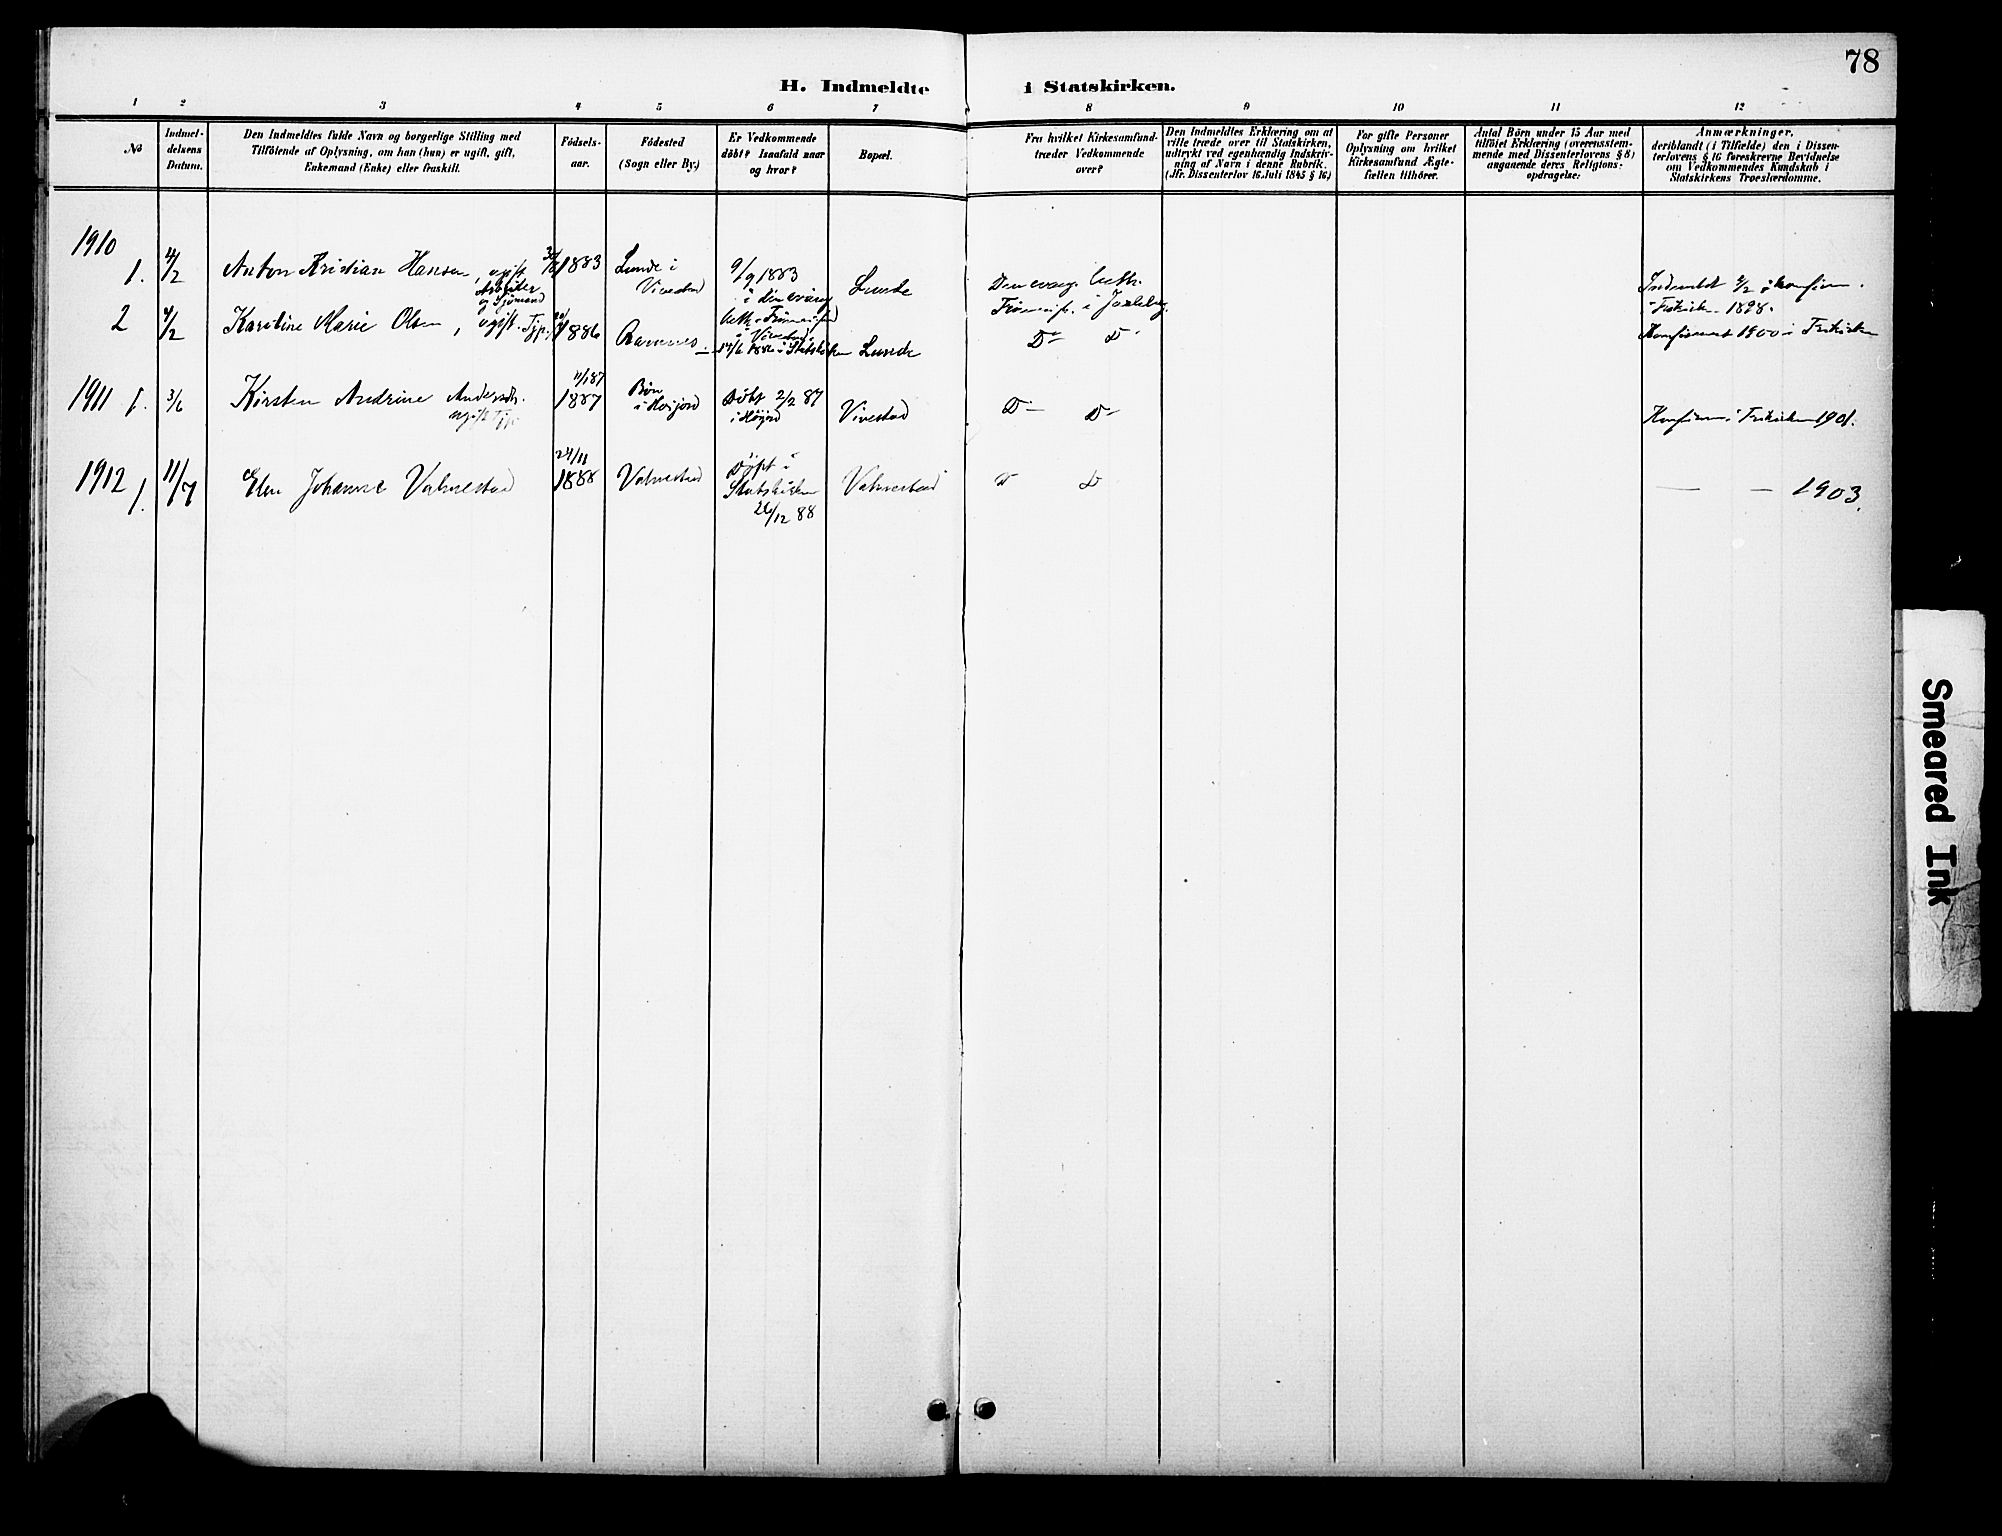 78
H. Indmeldte i Statskirken.
1 2 3 4 5 6 7 8 9 10 11 12
No
Indmel-
delsens
Datum.
Den Indmeldtes fulde Navn og borgerlige Stilling med
Tilföiende af Oplysning, om han (hun) er ugift, gift,
Enkemand (Enke) eller fraskilt.
Födsels-
aar.
Födested
(Sogn eller By.)
Er Vedkommende
döbt? Isaafald naar
og hvor?
Bopæl.
Fra hvilket Kirkesamfund
træder Vedkommende
over?
Den Indmeldtes Erklæring om at
ville træde over til Statskirken,
udtrykt ved egenhændig Indskriv-
ning af Navn i denne Rubrik.
(Jfr. Dissenterlov 16 Juli 1845 § 16)
For gifte Personer
Oplysning om hvilket
Kirkesamfund Ægte-
fællen tilhörer.
Antal Börn under 15 Aar med
tilföiet Erklæring (overensstem-
mende med Dissenterlovens § 8)
angaaende deres Religions-
opdragelse:
Anmærkninger,
deriblandt (i Tilfælde) den i Dissen-
terlovens § 16 foreskrevne Bevidnelse
om Vedkommendes Kundskab i
Statskirkens Troeslærdomme.
1910
1. 4/2 Anton Kristian Hansen, ugift.
Arbeider
og Sjömand
1883
Lunde i
Vivestad
9/9 1883
i den evang.
luth. Frimenighed
i Vivestad
Lunde
Den evang. luth.
Frimenigh. i Jarlsberg.
Indmeldt 4/2 konfirm.
i Frikirken 1898.
2 4/2 Karoline Marie Olsen, ugift. Tjp.
1886
Ramnes
14/6 1886 i Statskirken
Lunde
Do Do
Konfirmeret 1900 i Frikirken
1911 1. 3/6 Kirsten Andrine Andersdtr.
ugift Tjp.
11/1 87
1887
Bön
i Höijord
Döbt 2/2 87
i Höijord
Vivestad
Do Do
Konfirm. i Frikirken 1901.
1912 1. 11/7 Elen Johanne Valmestad
24/11
1888
Valmestad
Döpt i
Statskirken
26/12 88
Valmestad
Do Do
— — 1903.
Smeared Ink